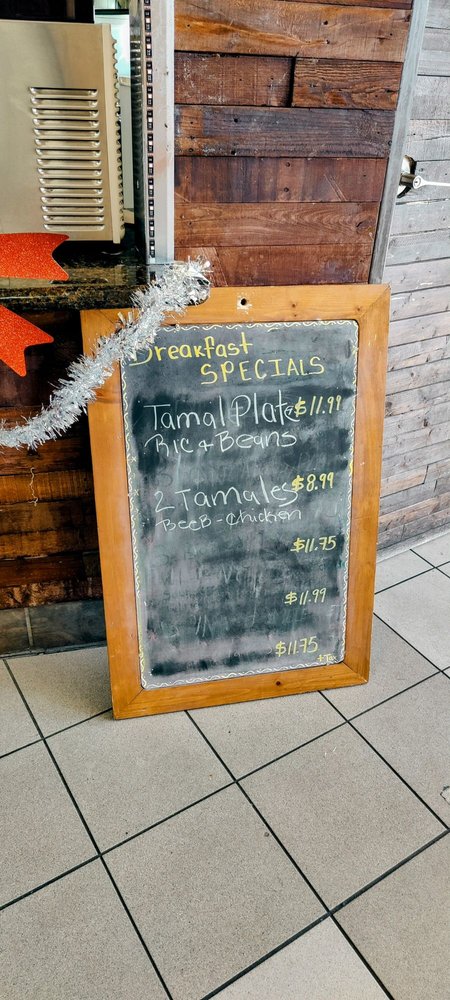 Breakfast
SPECIALS
Tamal Plate $11.99
Ric + Beans
2 Tamales $8.99
BeeB - Chicken
$11.75
$11.99
$11.75
+ Tax